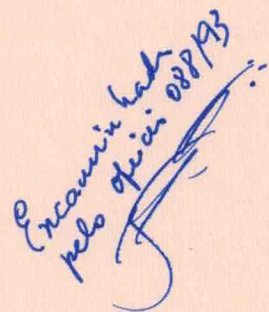 Encaminhada
pelo ofício 088/93